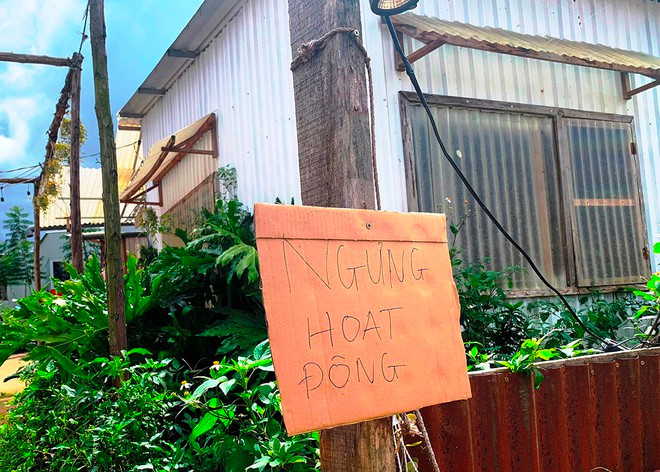 NGỪNG
HOẠT
ĐỘNG